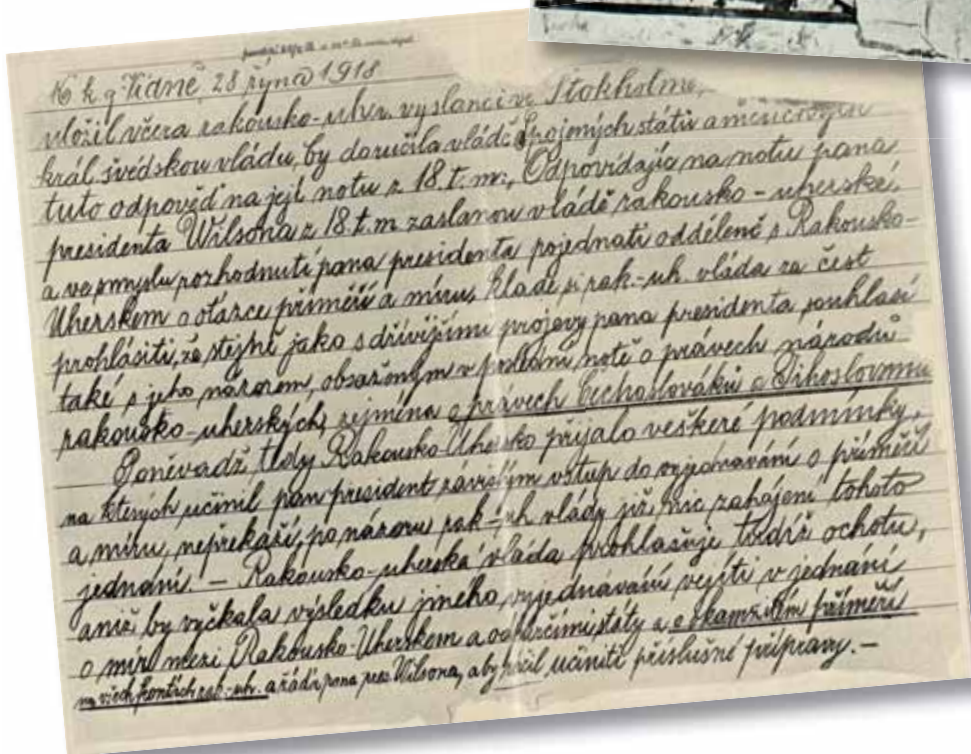 K. k. g. Vídně, 28 října 1918
uložil včera rakousko-uher. vyslanci ve Stokholmě,
král. švédskou vládu, by doručila vládě Spojených států amerických
tuto odpověď na její notu z 18. t. m.: Odpovídajíc na notu pana
presidenta Wilsona z 18. t. m. zaslanou vládě rakousko-uherské,
a ve smyslu rozhodnutí pana presidenta pojednati odděleně s Rakousko-
Uherskem o otázce příměří a míru, klade si rak.-uh. vláda za čest
prohlásiti, že stejně jako s dřívějšími projevy pana presidenta souhlasí
také s jeho názorem, obsaženým v poslední notě o právech národů
rakousko-uherských, zejména o právech Čechoslováků a Jihoslovanů
Poněvadž tedy Rakousko-Uhersko přijalo veškeré podmínky,
na kterých učinil pan president závislým vstup do vyjednávání o příměří
a míru, nepřekáží, po názoru rak-uh vlády již nic zahájení tohoto
jednání. – Rakousko-uherská vláda prohlašuje tudíž ochotu,
aniž by vyčkala výsledku jiného vyjednávání vejíti v jednání
o mír mezi Rakousko-Uherskem a odpůrčími státy a o okamžitém příměří
na všech frontách rak.-uh. a žádá pana pres. Wilsona, aby ráčil učiniti příslušné přípravy. –